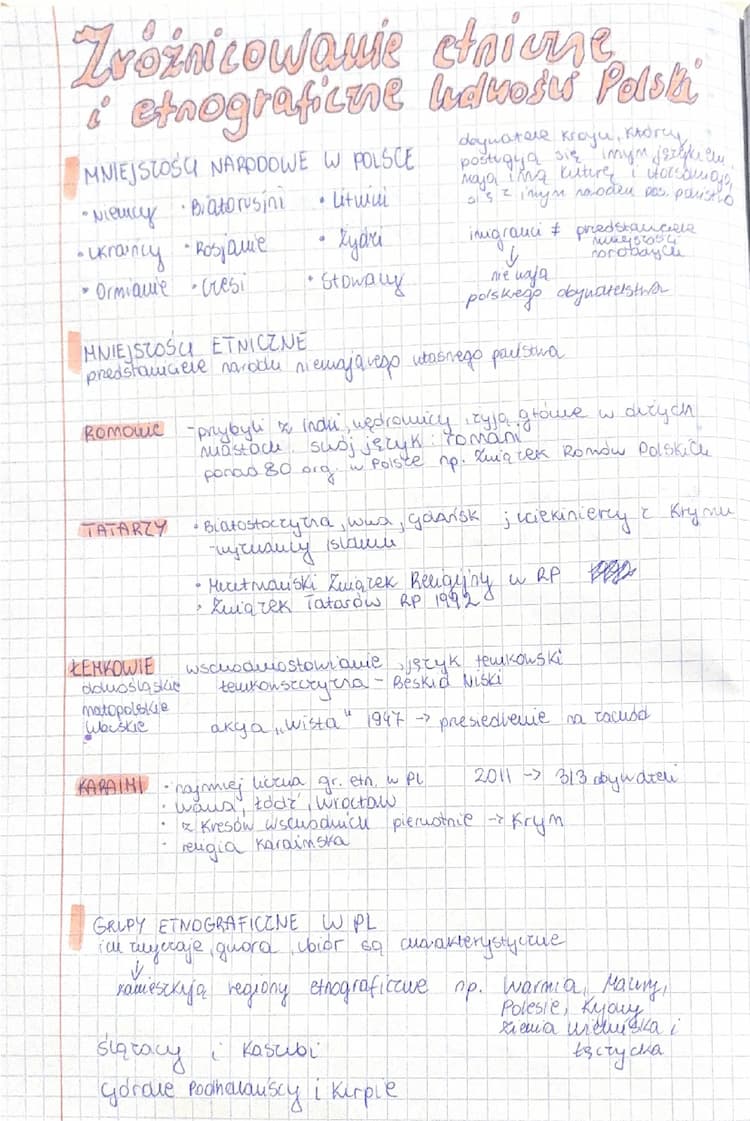 Zróżnicowanie etniczne
i etnograficzne ludności Polski
MNIEJSZOŚCI NARODOWE W POLSCE
• Niemcy • Białorusini • Litwini
• Ukraińcy • Rosjanie • Żydzi
• Ormianie • Czesi • Słowacy
obywatele kraju, którzy
posługują się innym językiem,
mają inną kulturę i utożsamiają
się z innym narodem pos. państwo
imigranci ≠ przedstawiciele
mniejszości
narodowych
↓
nie mają
polskiego obywatelstwa
MNIEJSZOŚCI ETNICZNE
przedstawiciele narodu niemającego własnego państwa
ROMOWIE - przybyli z Indii, wędrownicy, żyją główne w dużych
miastach. swój język: romani
ponad 80 org. w Polsce np. Związek Romów Polskich
TATARZY • Białostocczyzna, wwa, Gdańsk ; uciekinierzy z Krymu
- wyznawcy islamu
• Muzułmański Związek Religijny w RP
• Związek Tatarów RP 1992
ŁEMKOWIE wschodniosłowianie, język łemkowski
dolnośląskie łemkowszczyzna - Beskid Niski
małopolskie
lubuskie akcja „Wisła" 1947 → przesiedlenie na zachód
KARAIMI • najmniej liczna gr. etn. w PL 2011 → 313 obywateli
• wawa, Łódź, Wrocław
• z Kresów wschodnich pierwotnie → Krym
• religia karaimska
GRUPY ETNOGRAFICZNE W PL
ich zwyczaje, gwara, ubiór są charakterystyczne
↓
zamieszkują regiony etnograficzne np. Warmia, Mazury,
Polesie, Kujawy
ziemia wieluńska i
łęczycka
Ślązacy i Kaszubi
Górale Podhalańscy i Kurpie